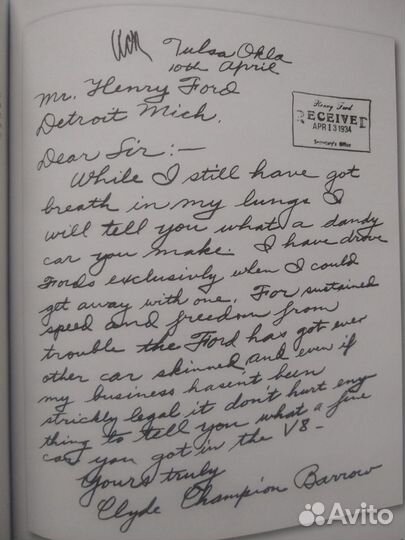 Tulsa Okla
10th April
Mr. Henry Ford
Detroit Mich.
Henry Ford
RECEIVED
APR 13 1934
Secretary's Office
Dear Sir:—
While I still have got
breath in my lungs I
will tell you what a dandy
car you make. I have drove
Fords exclusively when I could
get away with one. For sustained
speed and freedom from
trouble the Ford has got ever
other car skinned, and even if
my business hasen't been
strickly legal it don't hurt eny
thing to tell you what a fine
car you got in the V8—
Yours truly
Clyde Champion Barrow
Avito